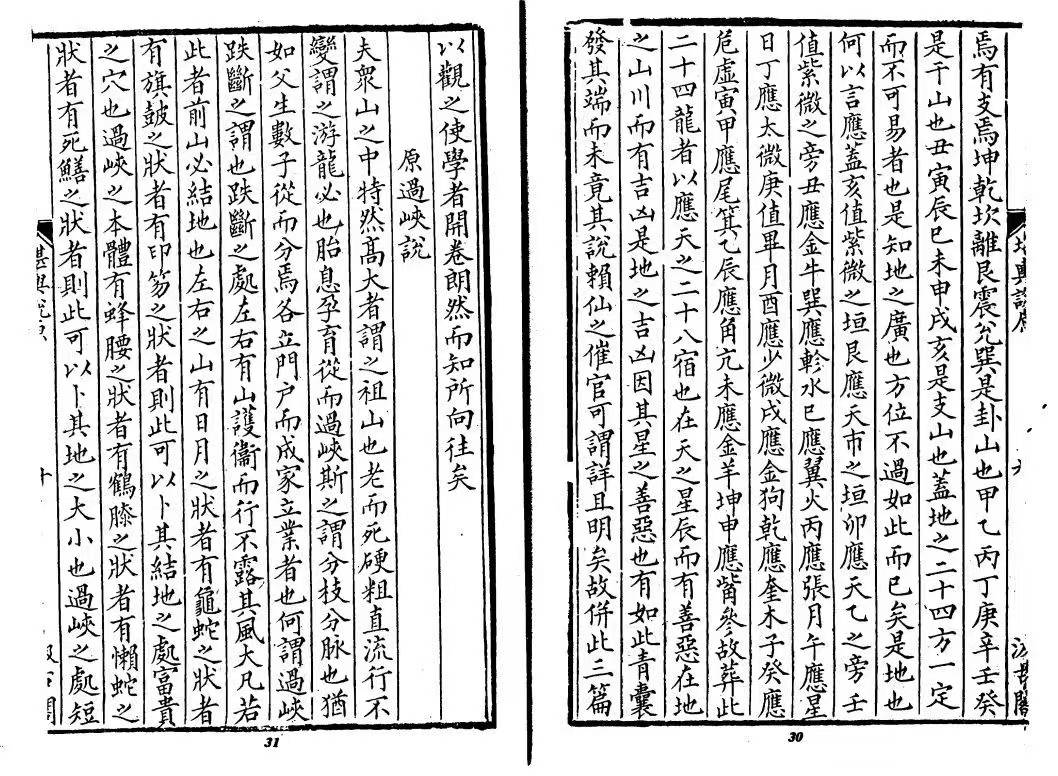 焉有支焉坤乾坎離艮震兌巽是卦山也甲乙丙丁庚辛壬癸
是干山也丑寅辰巳未申戌亥是支山也蓋地之二十四方一定
而不可易者也是知地之廣也方位不過如此而已矣是地也
何以言應蓋亥值紫微之垣艮應天市之垣卯應天乙之旁壬
值紫微之旁丑應金牛巽應軫水巳應翼火丙應張月午應星
日丁應太微庚值畢月酉應少微戌應金狗乾應奎木子癸應
危虛寅甲應尾箕乙辰應角亢未應金羊坤申應觜參故葬此
二十四龍者以應天之二十八宿也在天之星辰而有善惡在地
之山川而有吉凶是地之吉凶因其星之善惡也有如此青囊
發其端而未竟其說賴仙之催官可謂詳且明矣故併此三篇
30
以觀之使學者開卷朗然而知所向往矣
原過峽說
夫衆山之中特然高大者謂之祖山也老而死硬粗直流行不
變謂之游龍必也胎息孕育從而過峽斯之謂分枝分脉也猶
如父生數子從而分焉各立門户而成家立業者也何謂過峽
跌斷之謂也跌斷之處左右有山護衞而行不露其風大凡若
此者前山必結地也左右之山有日月之狀者有龜蛇之狀者
有旗鼓之狀者有印笏之狀者則此可以卜其結地之處富貴
之穴也過峽之本體有蜂腰之狀者有鶴膝之狀者有懶蛇之
狀者有死鱔之狀者則此可以卜其地之大小也過峽之處短
十
31